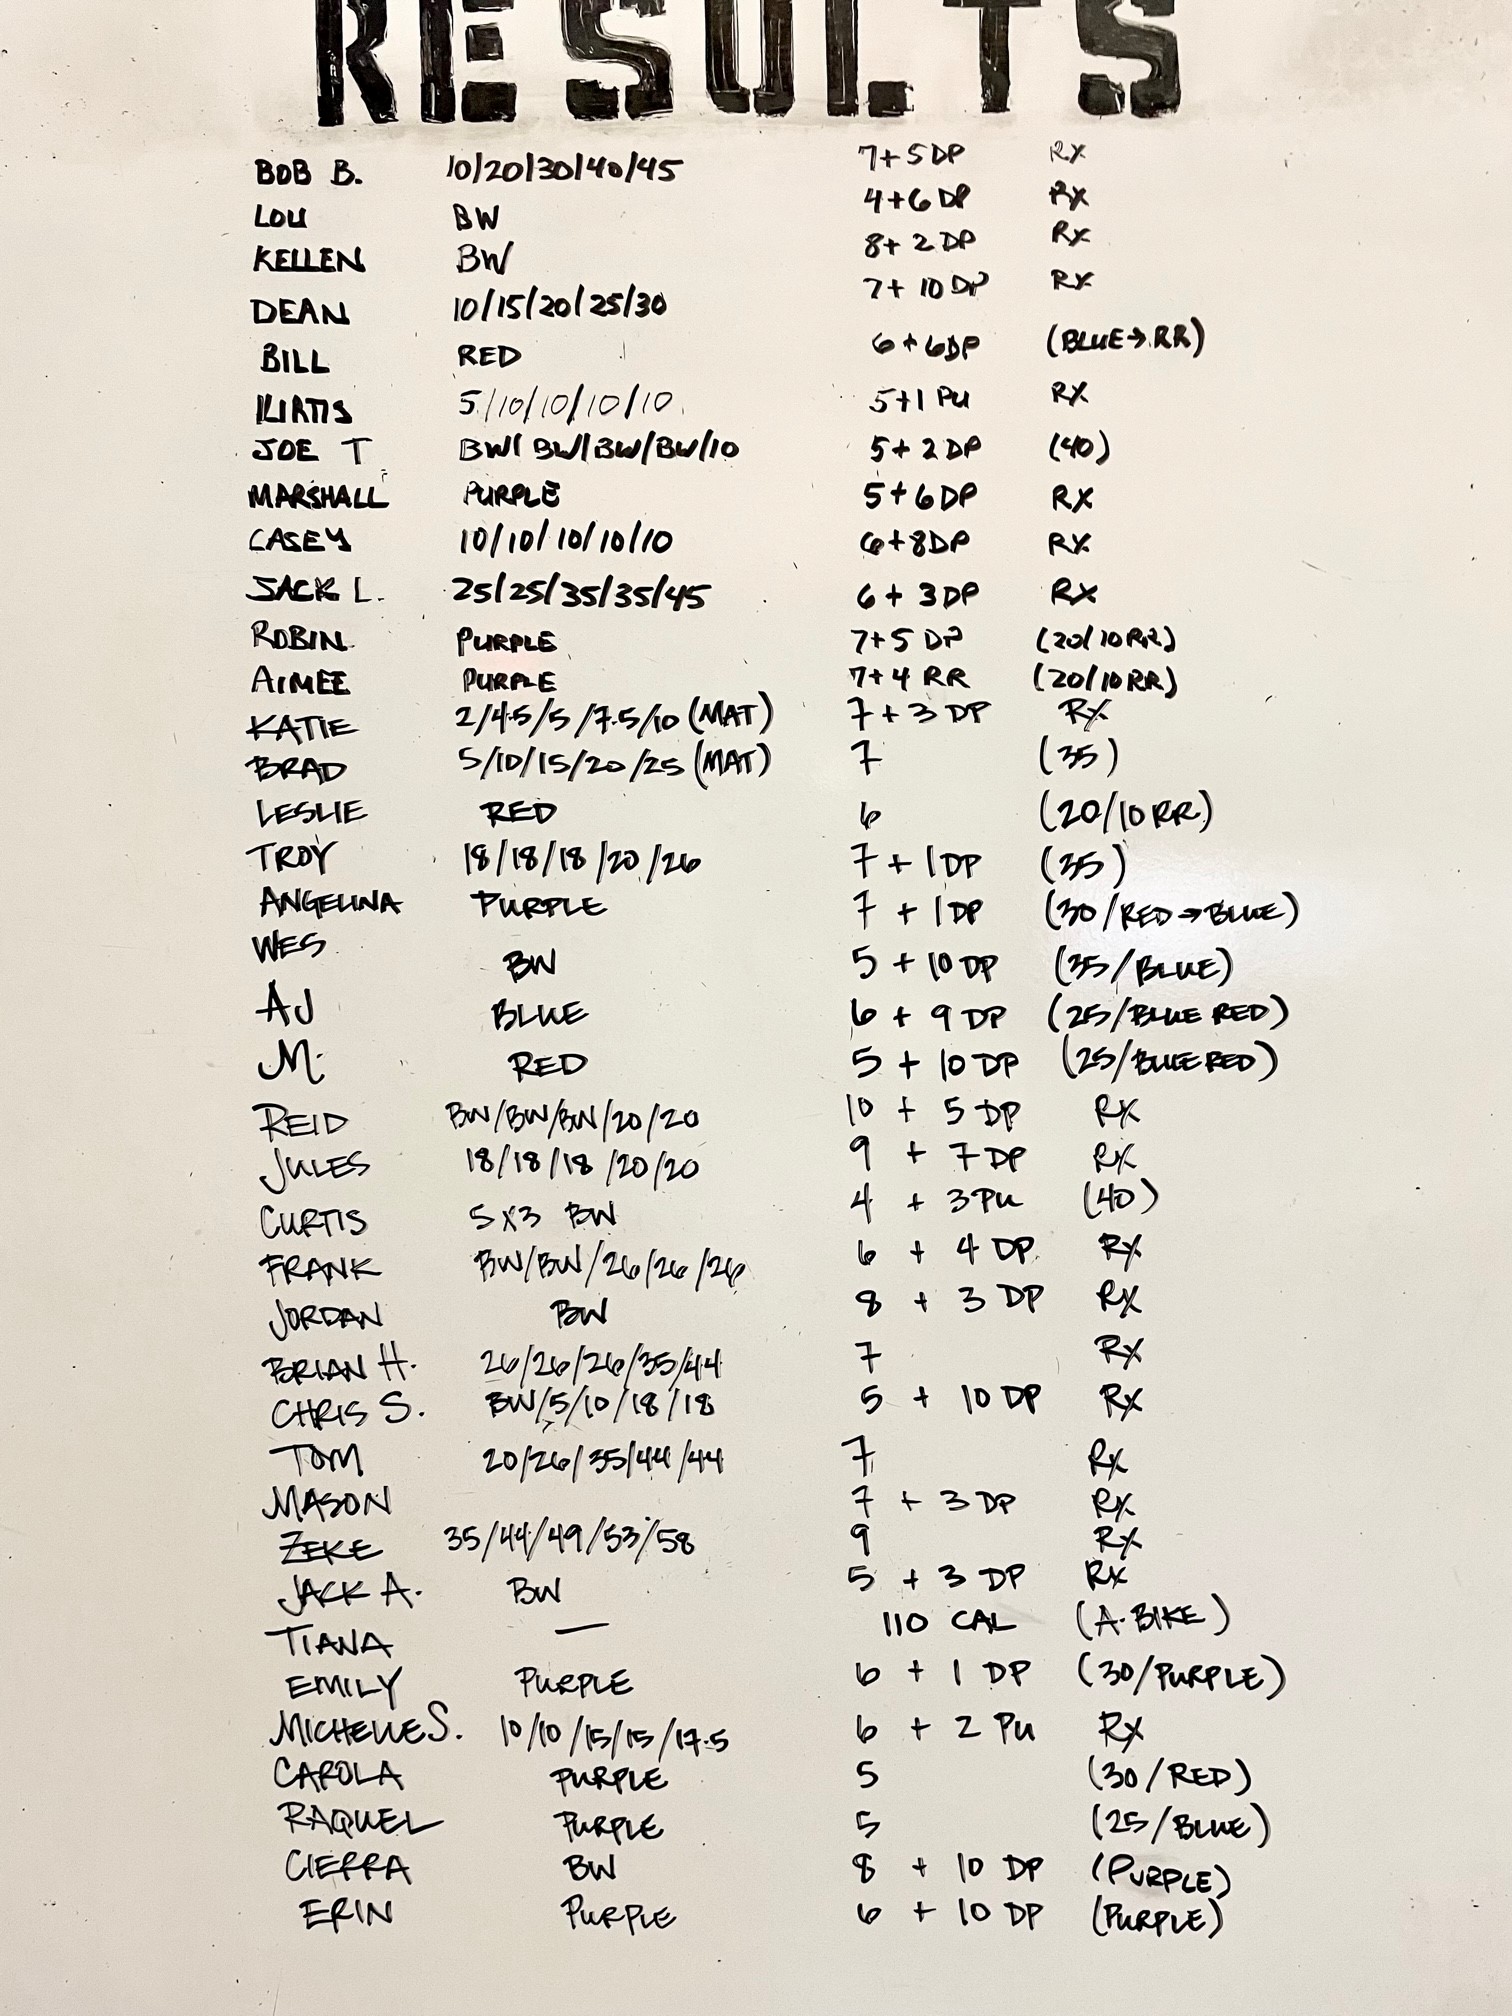 RESULTS
BOB B. 10/20/30/40/45 7+5 DP RX
LOU BW 4+6 DP RX
KELLEN BW 8+2 DP RX
DEAN 10/15/20/25/30 7+10 DP RX
BILL RED 6+6DP (BLUE→RR)
KIRTIS 5/10/10/10/10 5+1 PU RX
JOE T BW/BW/BW/BW/10 5+2 DP (40)
MARSHALL PURPLE 5+6 DP RX
CASEY 10/10/10/10/10 6+8DP RX
JACK L. 25/25/35/35/45 6+3 DP RX
ROBIN PURPLE 7+5 DP (20/10 RR)
AIMEE PURPLE 7+4 RR (20/10 RR)
KATIE 2/4.5/5/7.5/10 (MAT) 7+3 DP RX
BRAD 5/10/15/20/25 (MAT) 7 (35)
LESLIE RED 6 (20/10 RR)
TROY 18/18/18/20/26 7+1DP (35)
ANGELINA PURPLE 7+1DP (30/RED→BLUE)
WES BW 5+10 DP (35/BLUE)
AJ BLUE 6+9 DP (25/BLUE RED)
M. RED 5+10 DP (25/BLUE RED)
REID BW/BW/BW/20/20 10+5 DP RX
JULES 18/18/18/20/20 9+7 DP RX
CURTIS 5x3 BW 4+3 PU (40)
FRANK BW/BW/26/26/26 6+4 DP RX
JORDAN BW 8+3 DP RX
BRIAN H. 26/26/26/35/44 7 RX
CHRIS S. BW/5/10/18/18 5+10 DP RX
TOM 20/26/35/44/44 7 RX
MASON 7+3 DP RX
ZEKE 35/44/49/53/58 9 RX
JACK A. BW 5+3 DP RX
TIANA — 110 CAL (A.BIKE)
EMILY PURPLE 6+1 DP (30/PURPLE)
MICHELLE S. 10/10/15/15/17.5 6+2 PU RX
CAROLA PURPLE 5 (30/RED)
RAQUEL PURPLE 5 (25/BLUE)
CIERRA BW 8+10 DP (PURPLE)
ERIN PURPLE 6+10 DP (PURPLE)